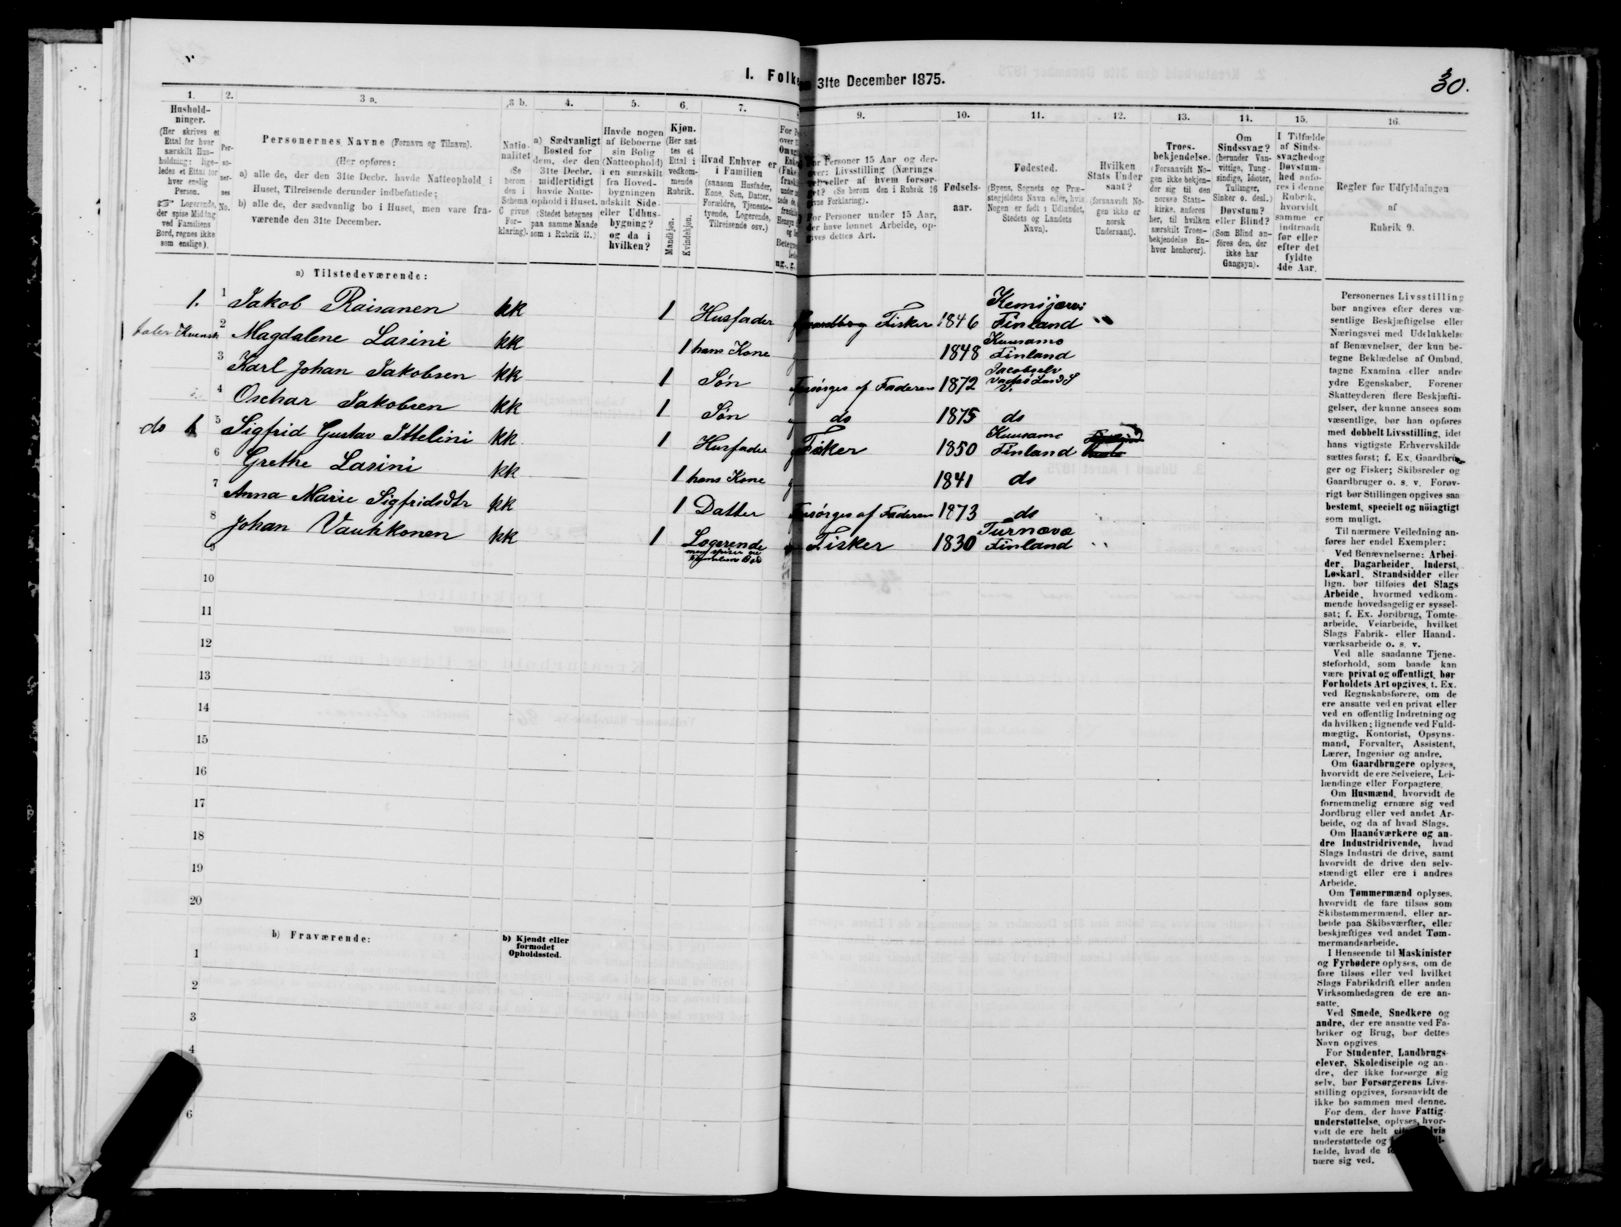 I. Folke
31te December 1875.
30.
1.
Hushold-
ninger.
(Her skrives et
Ettal for hver
særskilt Hus-
holdning; lige-
ledes et Ettal for
hver enslig
Person.
☞ Logerende,
der spise Middag
ved Familiens
Bord, regnes ikke
som enslige).
2.
Per-
so-
ner-
nes
No.
3 a.
Personernes Navne (Fornavn og Tilnavn).
(Her opføres:
a) alle de, der den 31te Decbr. havde Natteophold i
Huset, Tilreisende derunder indbefattede;
b) alle de, der sædvanlig bo i Huset, men vare fra-
værende den 31te December.
3 b.
Natio-
nalitet
(Se
herom
den i
Schema
C givne
For-
klaring).
4.
a) Sædvanligt
Bosted for
dem, der den
31te Decbr.
midlertidigt
havde Natte-
ophold i Huset.
(Stedet betegnes
paa samme Maade
som i Rubrik 11.)
5.
Havde nogen
af Beboerne
sin Bolig
(Natteophold)
i en særskilt
fra Hoved-
bygningen
adskilt Side-
eller Udhus-
bygning?
og da i
hvilken?
6.
Kjøn.
(Her sæt-
tes et
Ettal i
vedkom-
mende
Rubrik.
Mandkjøn.
Kvindekjøn.
7.
Hvad Enhver er
i Familien
(saasom Husfader,
Kone, Søn, Datter,
Forældre, Tjeneste-
tyende, Logerende,
Tilreisende osv.)
9.
For Personer 15 Aar og der-
over: Livsstilling (Nærings-
vei) eller af hvem forsør-
get? (Se herom den i Rubrik 16
givne Forklaring).
For Personer under 15 Aar,
der have lønnet Arbeide, op-
gives dettes Art.
10.
Fødsels-
aar.
11.
Fødested.
(Byens, Sognets og Præ-
stegjeldets Navn eller, hvis
Nogen er født i Udlandet,
Stedets og Landets
Navn).
12.
Hvilken
Stats Under-
saat?
(forsaavidt No-
gen ikke er
norsk
Undersaat).
13.
Troes-
bekjendelse.
(Forsaavidt No-
gen ikke bekjen-
der sig til den
norske Stats-
kirke, anføres
her, til hvilken
særskilt Troes-
bekjendelse En-
hver henhører).
14.
Om
Sindssvag?
(herunder Van-
vittige, Tung-
sindige, Idioter,
Tullinger,
Sinker o. desl.)
Døvstum?
eller Blind?
(Som Blind an-
føres den, der
ikke har
Gangsyn).
15.
I Tilfælde
af Sinds-
svaghed og
Døvstum-
hed anfø-
res i denne
Rubrik,
hvorvidt
samme er
indtraadt
før eller
efter det
fyldte
4de Aar.
16.
Regler for Udfyldningen
af
Rubrik 9.
a) Tilstedeværende:
1. 1 Jakob Raisanen kk 1 Husfader Fisker 1846 Kemijærvi Finland "
taler Kvensk 2 Magdalene Lasini kk 1 hans Kone g 1848 Kuusamo Finland
3 Karl Johan Jakobsen kk 1 Søn Forsørges af Faderen 1872 Jacobselv
4 Oschar Jakobsen kk 1 Søn do 1875 do
do 1 5 Sigfrid Gustav Ittelini kk 1 Husfader g Fisker 1850 Kuusamo Finland
6 Grethe Lasini kk 1 hans Kone g 1841 do
7 Anna Marie Sigfridsdtr kk 1 Datter Forsørges af Faderen 1873 do
8 Johan Vaukkonen kk 1 Logerende Fisker 1830 Turnæva Finland "
9
10
11
12
13
14
15
16
17
18
19
20
b) Fraværende:
b) Kjendt eller
formodet
Opholdssted.
1
2
3
4
6
Personernes Livsstilling
bør angives efter deres væ-
sentlige Beskjæftigelse eller
Næringsvei med Udelukkelse
af Benævnelser, der kun be-
tegne Beklædelse af Ombud,
tagne Examina eller andre
ydre Egenskaber. Forener
Skatteyderen flere Beskjæfti-
gelser, der kunne ansees som
væsentlige, bør han opføres
med dobbelt Livsstilling, idet
hans vigtigste Erhvervskilde
sættes først; f. Ex. Gaardbru-
ger og Fisker; Skibsreder og
Gaardbruger o. s. v. Forøv-
rigt bør Stillingen opgives saa
bestemt, specielt og nøiagtigt
som muligt.
Til nærmere Veiledning an-
føres her endel Exempler:
Ved Benævnelserne: Arbei-
der, Dagarbeider, Inderst,
Løskarl, Strandsidder eller
lign. bør tilføies det Slags
Arbeide, hvormed vedkom-
mende hovedsagelig er syssel-
sat; f. Ex. Jordbrug, Tomte-
arbeide, Veiarbeide, hvilket
Slags Fabrik- eller Haand-
værksarbeide o. s. v.
Ved alle saadanne Tjene-
steforhold, som baade kan
være privat og offentligt, bør
Forholdets Art opgives, t. Ex.
ved Regnskabsførere, om de
ere ansatte ved en privat eller
ved en offentlig Indretning og
da hvilken; lignende ved Fuld-
mægtig, Kontorist, Opsyns-
mand, Forvalter, Assistent,
Lærer, Ingeniør og andre.
Om Gaardbrugere oplyses,
hvorvidt de ere Selveiere, Lei-
lændinge eller Forpagtere.
Om Husmænd, hvorvidt de
fornemmelig ernære sig ved
Jordbrug eller ved andet Ar-
beide, og da af hvad Slags.
Om Haandværkere og an-
dre Industridrivende, hvad
Slags Industri de drive, samt
hvorvidt de drive den selv-
stændigt eller ere i andres
Arbeide.
Om Tømmermænd oplyses,
hvorvidt de fare tilsøs som
Skibstømmermænd, eller ar-
beide paa Skibsværfter, eller
beskjæftiges ved andet Tøm-
mermandsarbeide.
I Henseende til Maskinister
og Fyrbødere oplyses, om de
fare tilsøs eller ved hvilket
Slags Fabrikdrift eller anden
Virksomhedsgren de ere an-
satte.
Ved Smede, Snedkere og
andre, der ere ansatte ved Fa-
briker og Brug, bør dettes
Navn opgives.
For Studenter, Landbrugs-
elever, Skoledisciple og an-
dre, der ikke forsørge sig
selv, bør Forsørgerens Livs-
stilling opgives, forsaavidt de
ikke bo sammen med denne.
For dem, der have Fattig-
understøttelse, oplyses, hvor-
vidt de ere helt
understøttede og
fælde, hvad de
nære sig ved.